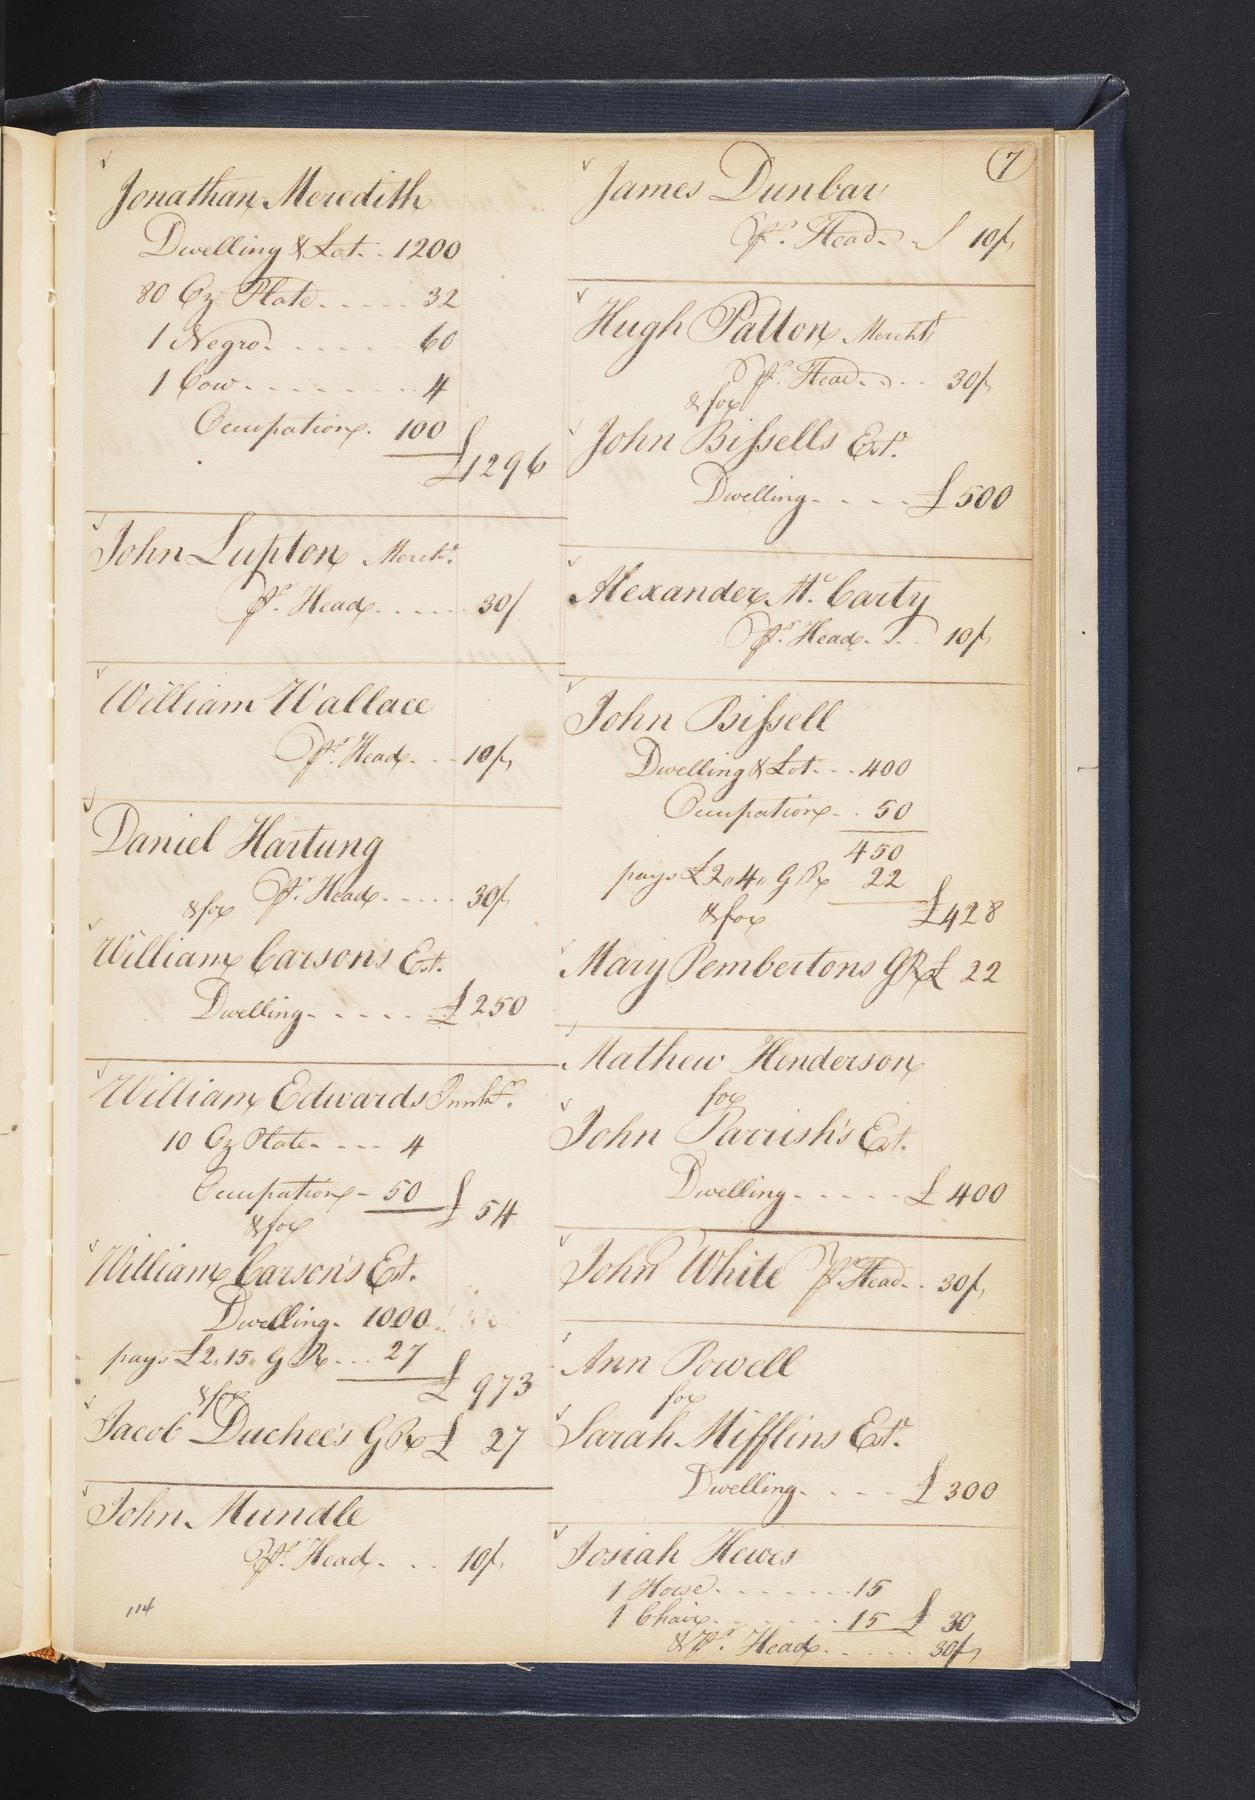 Jonathan Meredith
Dwelling & Lot - - 1200
80 Oz Plate - - - - - 32
1 Negro - - - - - - 60
1 Cow - - - - - - - - 4
Occupation - 100
£1296
John Lupton Mercht.
Pr. Head - - - - - 30/
William Wallace
Pr. Head - - - 10/,
Daniel Hartung
Pr. Head - - - - - 30/,
& for
William Carson's Est.
Dwelling - - - - - £250
William Edwards Innkr.
10 Oz Plate - - - - 4
Occupation - 50 £ 54
& for
William Carson's Est.
Dwelling - 1000
pays £2,,15,, G R - - - 27
£ 973
& for
Jacob Duchee's G R £ 27
John Mundle
Pr. Head - - - - 10/,
114
7
James Dunbar
Pr. Head - - 10/,
Hugh Patton Mercht
Pr. Head - - - 30/,
& for
John Bissells Est.
Dwelling - - - - - £500
Alexander Mc. Carty
Pr. Head - - - 10/,
John Bissell
Dwelling & Lot - - - 400
Occupation - - 50
450
pays £2,,4,, G R 22
£428
& for
Mary Pembertons G R £ 22
Mathew Henderson
for
John Parrish's Est.
Dwelling - - - - - £ 400
John White Pr. Head - - 30/,
Ann Powell
for
Sarah Mifflins Est.
Dwelling - - - - £ 300
Josiah Hewes
1 Horse - - - - - - - 15
1 Chair - - - - - - - 15 £ 30
& Pr. Head - - - - - 30/,